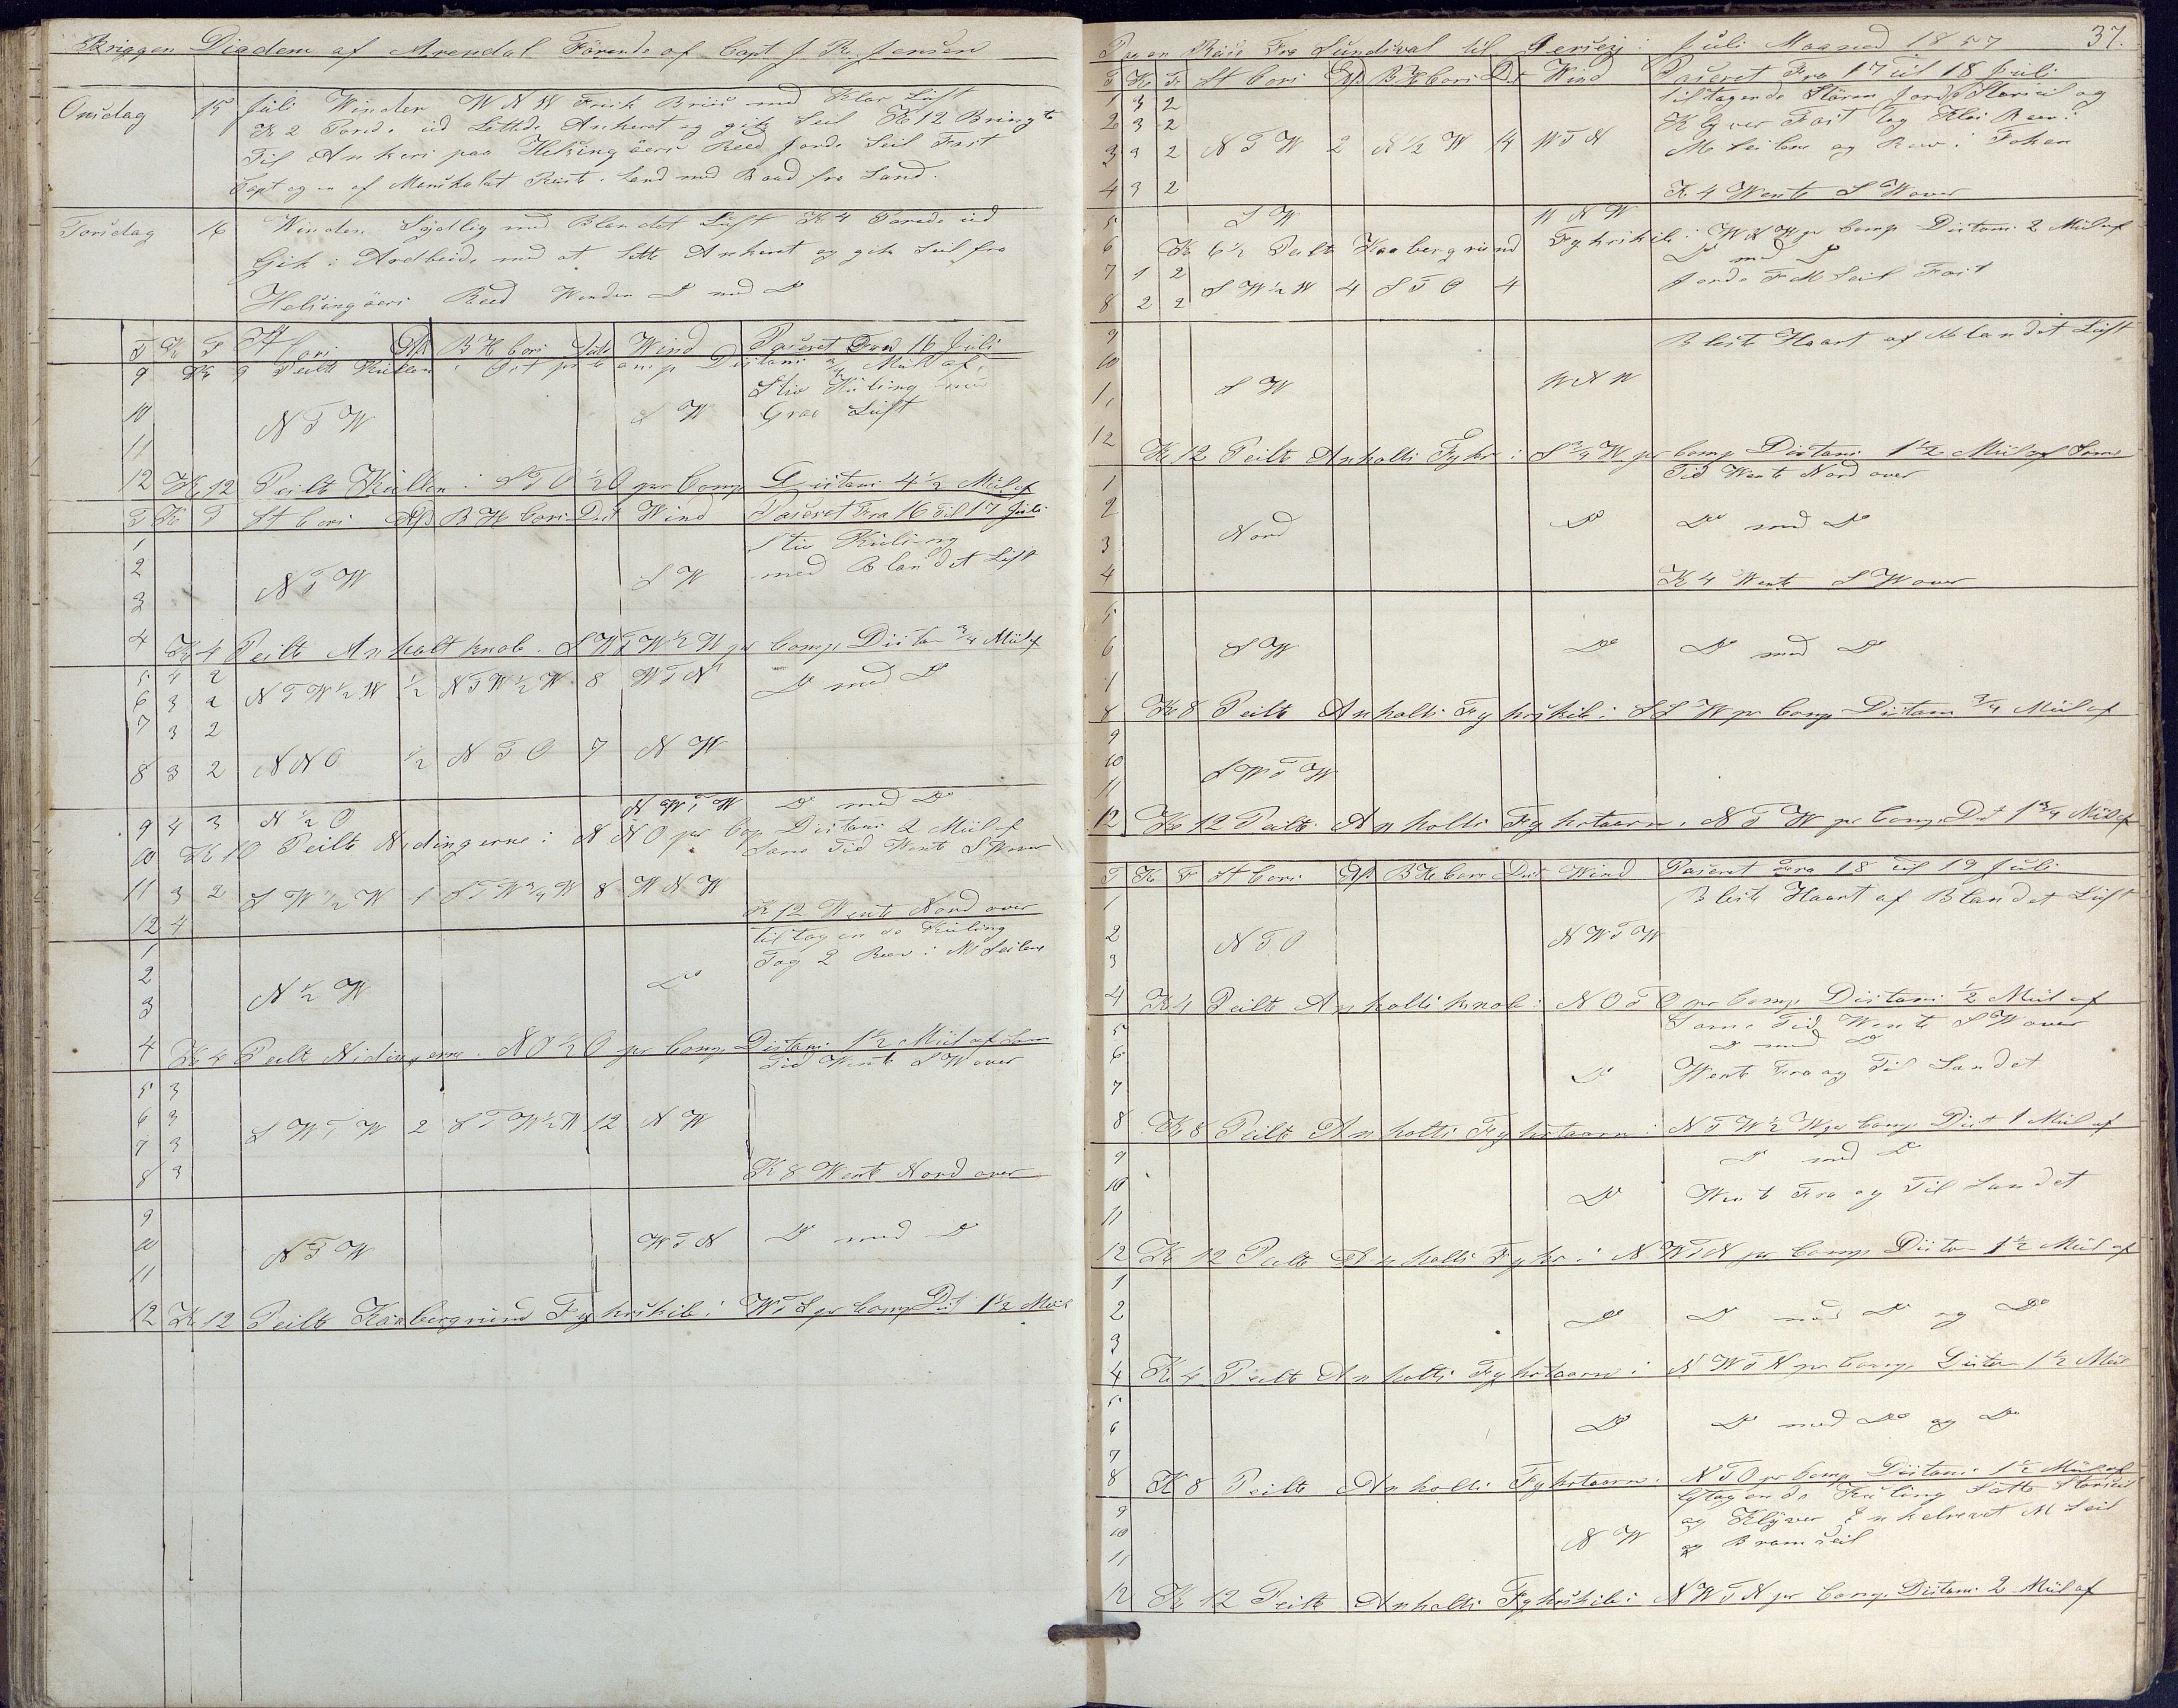 Briggen Diadem af Arendal Förende af Capt J R Jensen
Onsdag 15 Juli Winden W N W Frisk Briis med Klar Luft
K 2 Purde ud Lettede Ankeret og gik Seil K 12 Bringte
Til Ankers paa Helsingöers Reed Jorde Seil Fast
Capt og en af Manskabet Reiste i Land med Baad fra Land.
Torsdag 16 Winden Sydlig med Blandet Luft K 4 Purede ud
Gik i Arbeide med at Lette Ankeret og gik Seil fra
Helsingöers Reed Winden Do med Do
T K F St Cors Af B H Cors Dist Wind Paseret Den 16 Juli
9 K 9 Peilte Kullen i Ost pr Comp Distans 3/4 Miil af
Stiv Kuling med
10 N T W S W Graa Luft
11
12 K 12 Peilte Kullen i S T O 1/2 O par Comp Distans 4 1/2 Miil af
T K F St Cors Af B H Cors Dist Wind Paseret Fra 16 Til 17 Juli
1 Stiv Kuling
2 N T W S W med Blandet Luft
3
4 K 4 Peilte Anholt knob i S W T W 1/2 W par Comp Distan 3/4 Miil af
5 4 2
6 3 2 N T W 1/2 W 1/2 N T W 1/2 W 8 W T N Do med Do
7 3 2
8 3 2 N N O 1/2 N T O 7 N W
9 4 3 N 1/2 O N W T W Do med Do
10 K 10 Peilte Nidingerne i N N O par Cop Distans 2 Miil af
Same Tid Wente S W over
11 3 2 S W 1/2 W 1 S T W 3/4 W 8 W N W
12 4 K 12 Wente Nord over
1 tiltagende Kuling
2 Do Tog 2 Reev i M Seilene
3 N 1/2 W
4 K 4 Peilte Nidingerne i N O 1/2 O pr Comp Distans 1 1/2 Miil af Sam
5 3 Tid Wente S W over
6 3 S W T W 2 S T W 1/2 W 12 N W
7 3
8 3 K 8 Wente Nord over
9
10 N T W W T N Do med Do
11
12 K 12 Peilte Kaabergrund Fyhrskib i W T S pr Comp Dist 1 1/2 Miil
Paa en Reise Fra Sundsval til Gersey i Juli Maaned 1857 37.
T K F St Cors Af B H Cors Dt Wind Paseret Fra 17 til 18 Juli
1 3 2 tiltagende Störm Jorde Storseil og
2 3 2 Klyver Fast tog Klos Reev i
3 3 2 N T W 2 N 1/2 W 14 W T N M Seilene og Reev i Fokken
4 3 2 K 4 Wente S W over
5 S W W N W
6 K 6 1/2 Peilte Kaabergrund Fyhrskib i W N W pr Comp Distans 2 Miil af
Do med Do
7 1 2 S W 1/2 W 4 S T O 4 Jorde F M Seil Fast
8 2 2
9 Bleste Haart af Blandet Luft
10
11 S W W N W
12 K 12 Peilte Anholts Fyhr i S 3/4 W pr Comp Distans 1 1/2 Miil af Same
1 Tid Wente Nord over
2 Nord Do Do med Do
3
4 K 4 Wente S W over
5
6 S W Do Do med Do
7
8 K 8 Peilte Anholts Fyhrskib i S S W pr Comp Distans 3/4 Miil af
9
10 S W T W
11
12 K 12 Peilte Anholts Fyhrtaarn i N T W pr Comp Dt 1 3/4 Miil af
T K F St Cors Af B H Cors Dist Wind Paseret Fra 18 til 19 Juli
1 Bleste Haart af Blandet Luft
2 N T O N W T W
3
4 K 4 Peilte Anholts knob i N O T O pr Comp Distans 1/2 Miil af
5 Same Tid Wente S W over
6 Do med Do
7 Do Wente Fra og Til Landet
8 K 8 Peilte Anholts Fyhrtaarn i N T W 1/2 W pr Comp Dist 1 Miil af
9 Do med Do
10 Do Wente Fra og Til Landet
11
12 K 12 Peilte Anholts Fyhr i N W T N pr Comp Distan 1 1/2 Miil af
1
2 Do Do med Do og Do
3
4 K 4 Peilte Anholts Fyhrtaarn i N W T N pr Comp Distan 1 1/2 Miil
5
6 Do Do med Do og Do
7
8 K 8 Peilte Anholts Fyhrtaarn i N T O pr Comp Distans 1 1/2 Miil af
9 aftagende Kuling Satte Storseil
10 N W og Klyver Enkelrevet M Seil
11 og Bramseil
12 K 12 Peilte Anholts Fyhrskib i N W T N pr Comp Distans 2 Miil af